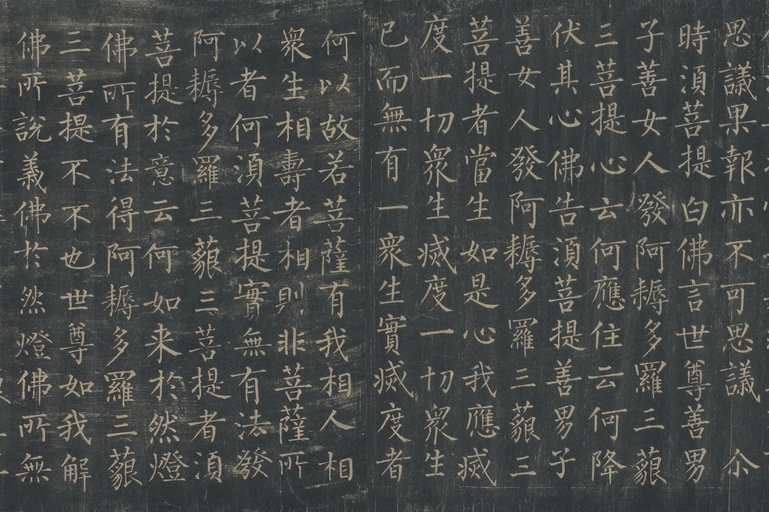 思議果報亦不可思議尒
時湏菩提白佛言世尊善男
子善女人發阿耨多羅三藐
三菩提心云何應住云何降
伏其心佛告湏菩提善男子
善女人發阿耨多羅三藐三
菩提者當生如是心我應滅
度一切衆生滅度一切衆生
已而無有一衆生實滅度者
何以故若菩薩有我相人相
衆生相壽者相則非菩薩所
以者何湏菩提實無有法發
阿耨多羅三藐三菩提者湏
菩提於意云何如来於然燈
佛所有法得阿耨多羅三藐
三菩提不不也世尊如我解
佛所說義佛於然燈佛所無